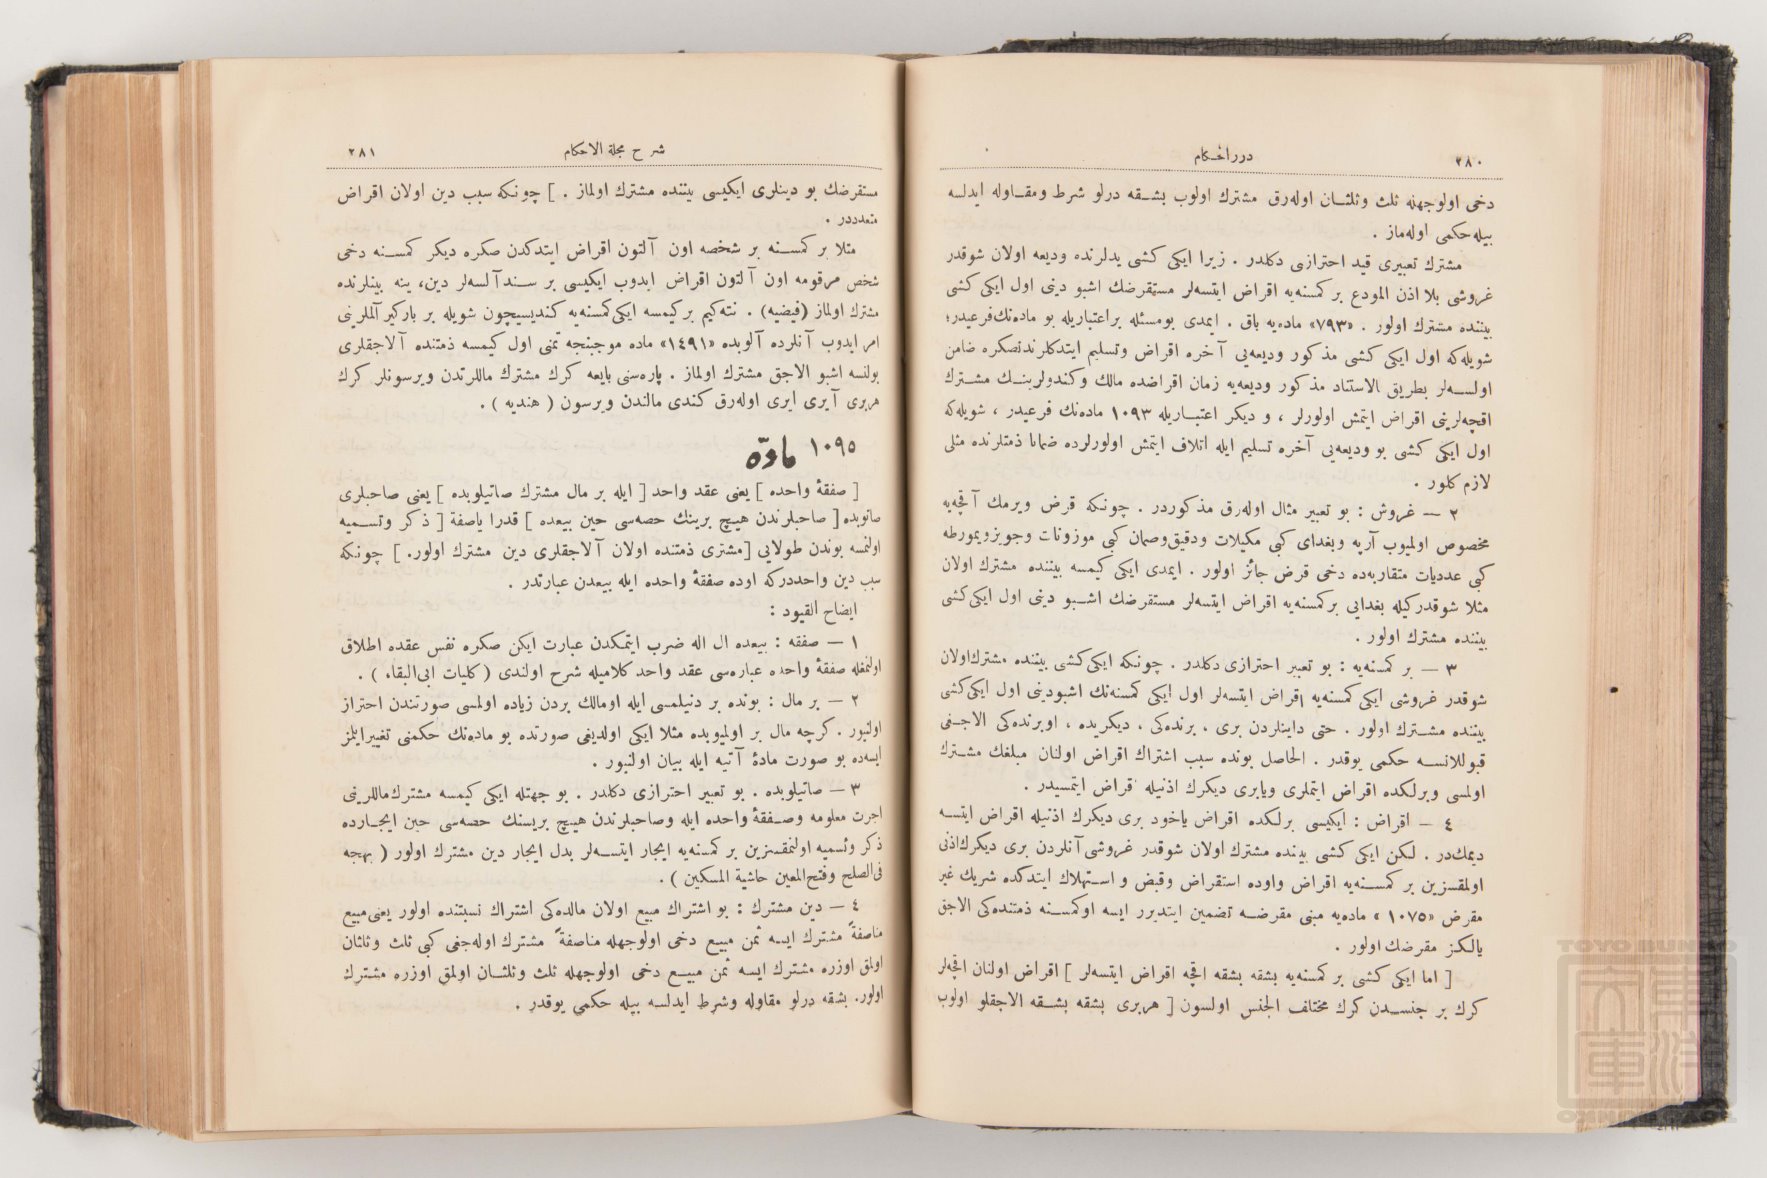 ٢٨٠
دررالحكام
دخی اولوجهله ثلث وثلثـان اوله‌رق مشترك اولوب بشـقه درلو شرط ومقـاوله ایدلسه
بیله‌حكمی اوله‌ماز .
مشترك تعبیری قید احترازی دكلدر . زیرا ایكی كشی یدلرنده ودیعه اولان شوقدر
غروشی بلا اذن المودع بر كمسنه‌یه اقراض ایتسه‌لر مستقرضك اشبو دینی اول ایكی كشی
بیننده مشترك اولور . «٧٩٣» ماده‌یه باق . ایمدی بومسئله براعتباریله بو ماده‌نك‌فرعیدر؛
شویله‌كه اول ایكی كشی مذكور ودیعه‌یی آخره اقراض وتسلیم ایتدكلرندنصكره ضامن
اولسـه‌لر بطریق الاستناد مذكور ودیعه‌یه زمان اقراضده مالك وكندولرینـك مشـترك
اقچه‌لرینی اقراض ایتمش اولورلر ، و دیكر اعتبـاریله ١٠٩٣ ماده‌نك فرعیدر ، شویله‌كه
اول ایكی كشی بو ودیعه‌یی آخره تسلیم ایله اتلاف ایتمش اولورلرده ضمانا ذمتلرنده مثلی
لازم كلور .
٢ — غروش : بو تعبیر مثال اوله‌رق مذكوردر . چونكه قرض ویرمك آقچه‌یه
مخصوص اولمیوب آرپه وبغدای كبی مكیلات ودقیق‌وصمان كبی موزونات وجویزویمورطه
كبی عددیات متقاربه‌ده دخی قرض جائز اولور . ایمدی ایكی كیمسه بیننده مشترك اولان
مثلا شوقدركیله بغدایی بر كمسنه‌یه اقراض ایتسه‌لر مستقرضك اشـبو دینی اول ایكی‌كشی
بیننده مشترك اولور .
٣ — بر كمسنه‌یه : بو تعبیر احترازی دكلدر . چونكه ایكی‌كشی بیننده مشترك‌اولان
شوقدر غروشی ایكی كمسنه‌یه اقراض ایتسه‌لر اول ایكی كمسنه‌نك اشبودینی اول ایكی‌كشی
بیننده مشـترك اولور . حتی داینلردن بری ، برنده‌كی ، دیكریده ، اوبرنده‌كی الاجـغی
قبوللانسـه حكمی یوقدر . الحاصل بونده سبب اشتراك اقراض اولنان مبلغك مشـترك
اولمسی وبرلكده اقراض ایتملری ویابری دیكرك اذنیله اقراض ایتمسیدر .
٤ — اقراض : ایكیسی برلكده اقراض یاخود بری دیكرك اذنیله اقراض ایتسـه
دیمك‌در . لكن ایكی كشی بیننده مشترك اولان شوقدر غروشی آنلردن بری دیكرك‌اذنی
اولمقسزین بر كمسـنه‌یه اقراض واوده استقراض وقبض و اسـتهلاك ایتدكده شریك غیر
مقرض «١٠٧٥» ماده‌یه مبنی مقرضـه تضمین ایتدیرر ایسه اوكمسـنه ذمتنده‌كی الاجق
یالكز مقرضك اولور .
[ اما ایكی كشی بر كمسنه‌یه بشقه بشقه اقچه اقراض ایتسه‌لر ] اقراض اولنان اقچه‌لر
كرك بر جنسـدن كرك مختلف الجنس اولسون [ هربری بشقه بشـقه الاجقلو اولوب
شرح مجلة الاحكام
٢٨١
مستقرضك بو دینلری ایكیسی بیننده مشترك اولماز . ] چونكه سبب دین اولان اقراض
متعدددر .
مثلا بر كمسـنه بر شخصه اون آلتون اقراض ایتدكدن صكره دیكر كمسـنه دخی
شخص مرقومه اون آلتون اقراض ایدوب ایكیسی بر سـندآلسه‌لر دین، ینه بینلرنده
مشترك اولماز (فیضیه) . نته‌كیم بر كیمسه ایكی كمسنه‌یه كندیسیچون شویله بر باركیر آلملرینی
امر ایدوب آنلرده آلوبده «١٤٩١» ماده موجبنجه ثمنی اول كیمسه ذمتنده آلاجقلری
بولنسه اشبو الاجق مشترك اولماز . پاره‌سنی بایعه كرك مشترك ماللرندن ویرسونلر كرك
هربری آیری ایری اوله‌رق كندی مالندن ویرسون ( هندیه ) .
١٠٩٥ مادّه
[ صفقۀ واحده ] یعنی عقد واحد [ ایله بر مال مشترك صاتیلوبده ] یعنی صاحبلری
صاتوبده [ صاحبلرندن هیـچ برینك حصه‌سی حین بیعده ] قدرا یاصفة [ ذكر وتسـمیه
اولنمسه بوندن طولایی [مشتری ذمتنده اولان آلاجقلری دین مشترك اولور. ] چونكه
سبب دین واحددركه اوده صفقۀ واحده ایله بیعدن عبارتدر .
ایضاح القیود :
١ — صفقه : بیعده ال اله ضرب ایتمكدن عبارت ایكن صكره نفس عقده اطلاق
اولنمغله صفقۀ واحده عباره‌سی عقد واحد كلامیله شرح اولندی ( كلیات ابی‌البقاء ) .
٢ — بر مال : بونده بر دنیلمسی ایله اومالك بردن زیاده اولمسی صورتندن احتراز
اولنیور . كرچه مال بر اولمیوبده مثلا ایكی اولدیغی صورتده بو ماده‌نك حكمنی تغییرایلمز
ایسه‌ده بو صورت مادۀ آتیه ایله بیان اولنیور .
٣ — صاتیلوبده . بو تعبیر احترازی دكلدر . بو جهتله ایكی كیمسه مشترك‌ماللرینی
اجرت معلومه وصـفقۀ واحده ایله وصاحبلرندن هیـچ بریسنك حصه‌سی حین ایجـارده
ذكر وتسمیه اولنمقسزین بر كمسنه‌یه ایجار ایتسـه‌لر بدل ایجار دین مشترك اولور ( بهجه
فی‌الصلح وفتح‌المعین حاشیة المسكین ) .
٤ — دین مشترك : بو اشتراك مبیع اولان مالده‌كی اشتراك نسبتنده اولور یعنی‌مبیع
مناصفةً مشترك ایسه ثمن مبیـع دخی اولوجهله مناصفةً مشترك اوله‌جغی كبی ثلث وثلثان
اولمق اوزره مشترك ایسه ثمن مبیـع دخی اولوجهله ثلث وثلثـان اولمق اوزره مشترك
اولور. بشقه درلو مقاوله وشرط ایدلسه بیله حكمی یوقدر .
TOYO BUNKO
東洋文庫